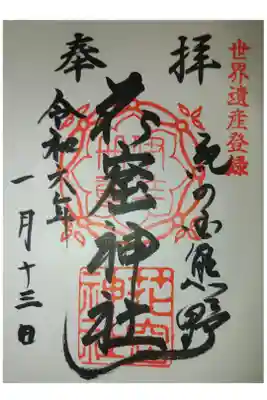 世界遺産登録
奉拝
熊野
花窟神社
花窟神社
令和六年
一月十三日